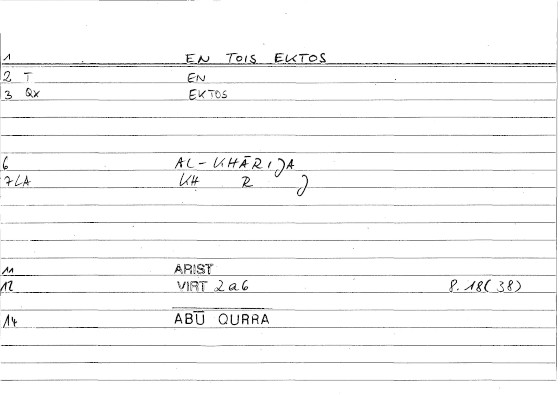 1 EN TOIS EKTOS
2 T EN
3 Qx EKTOS
6 AL-KHĀRIJA
7 LA KH R J
11 ARIST
12 VIRT 2a6 8.18(38)
14 ABŪ QURRA